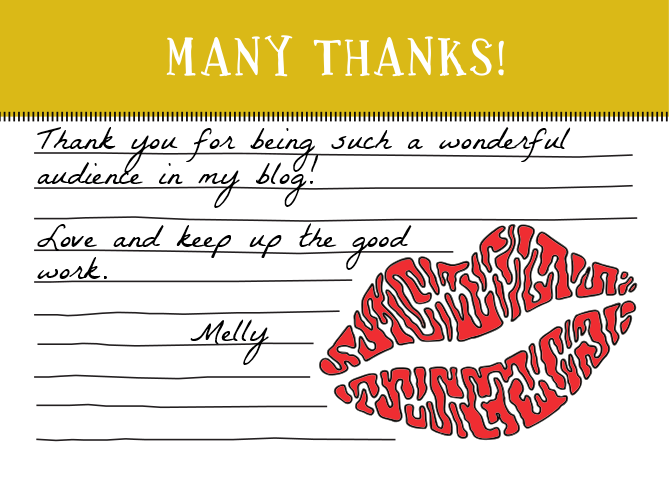 MANY THANKS!
Thank you for being such a wonderful
audience in my blog!
Love and keep up the good
work.
Melly